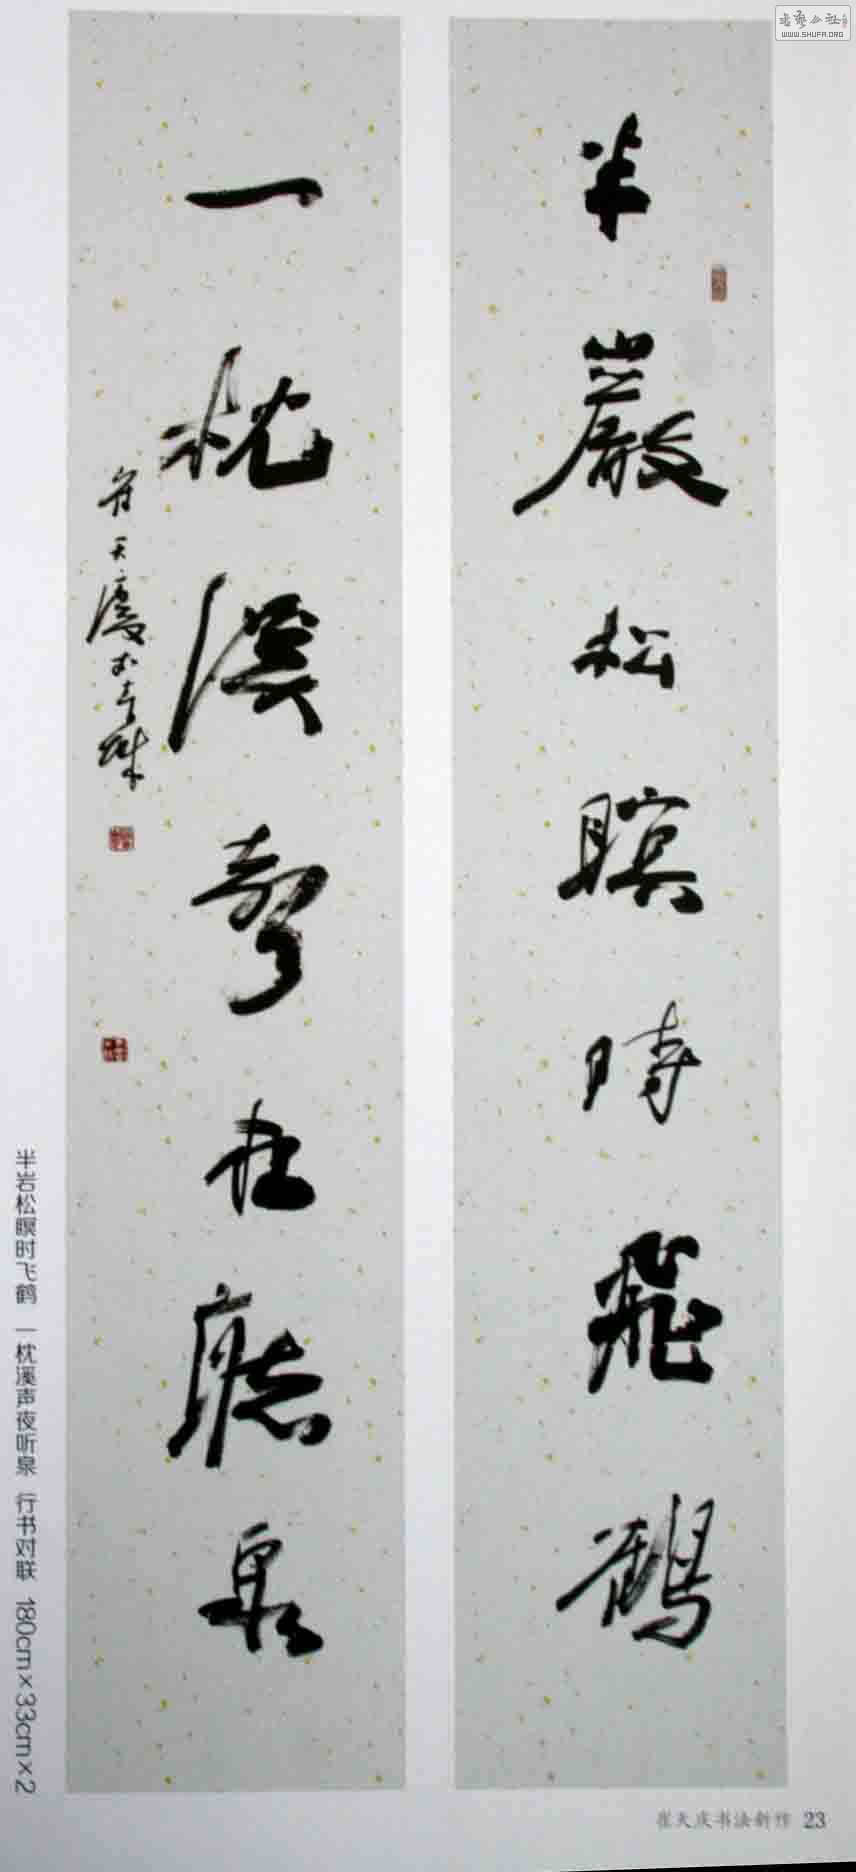 书艺公社
WWW.SHUFA.ORG
半巖松暝時飛鶴
一枕溪聲夜聽泉
崔天慶
半岩松瞑时飞鹤 一枕溪声夜听泉 行书对联 180cm×33cm×2
崔天庆书法新作 23